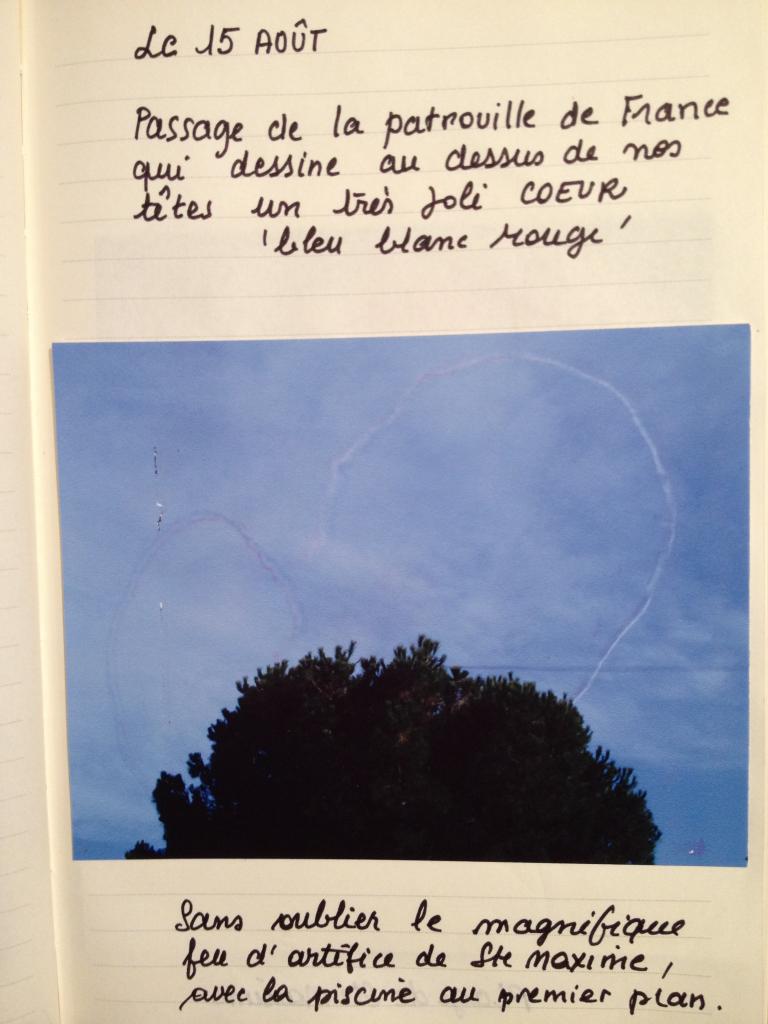 Le 15 AOÛT
Passage de la patrouille de France
qui dessine au dessus de nos
têtes un très joli COEUR
'bleu blanc rouge'
Sans oublier le magnifique
feu d'artifice de Ste Maxime,
avec la piscine au premier plan.